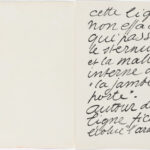 cette lig
non esa
qui pass
le sternu
et la mall
interne d
"la jambe
poste".
autour d
ligne fic
évolue l'ara